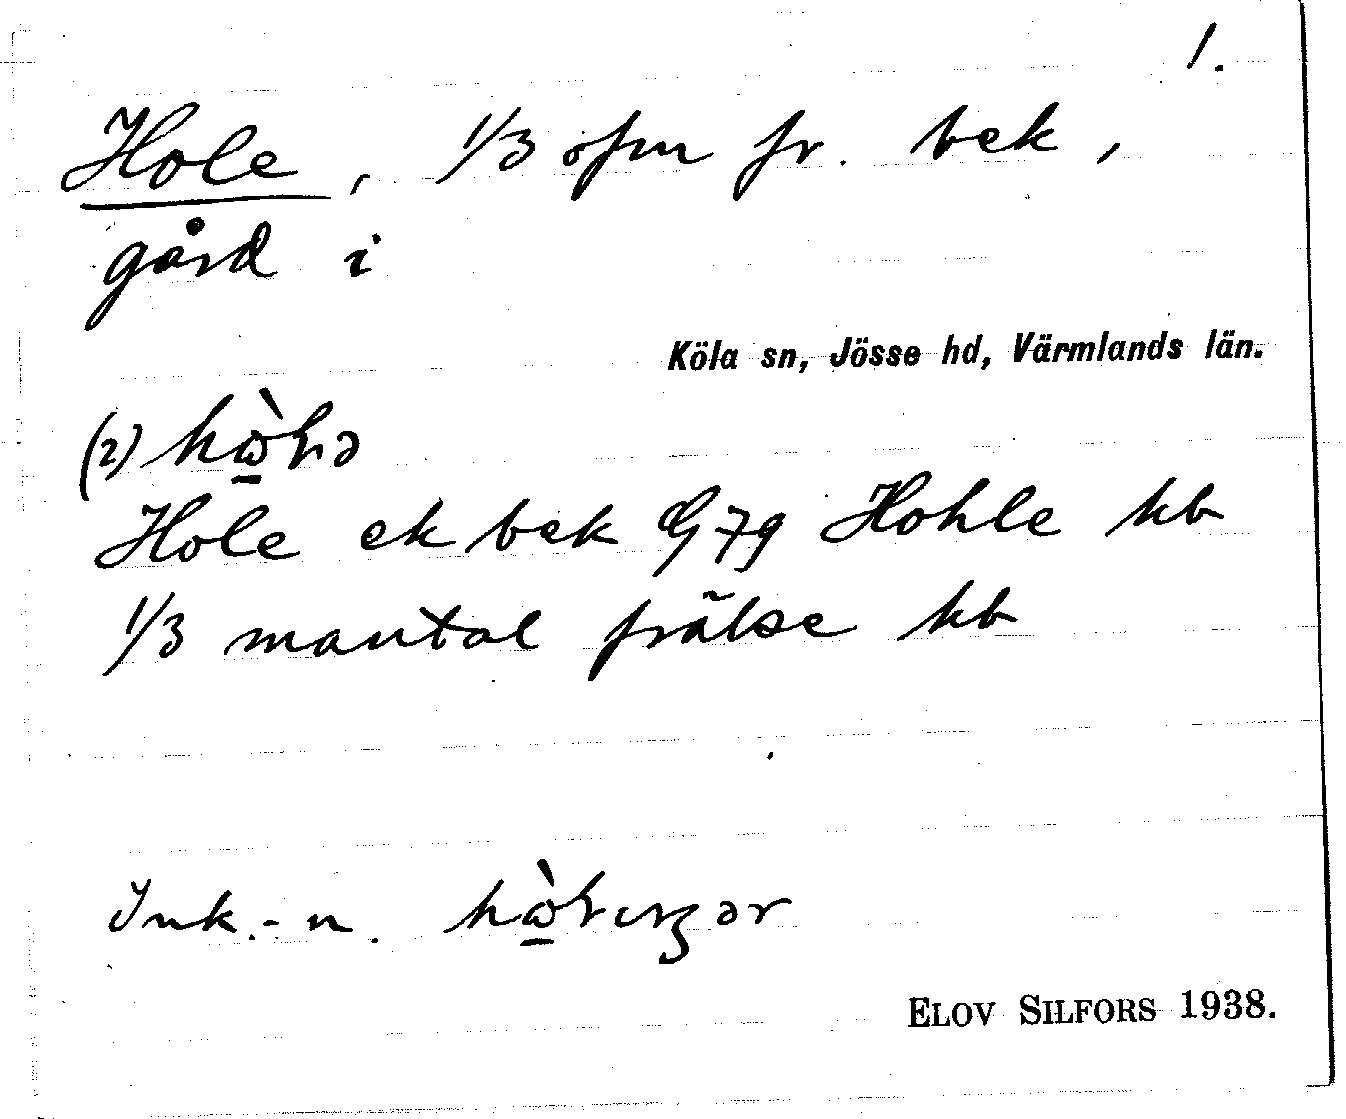 1.
Hole, 1/3 ofm fr. bek,
gård i
Köla sn, Jösse hd, Värmlands län.
(2)
Hole ek bek G7g Hohle kb
1/3 mantal frälse kb
Ink.-n.
ELOV SILFORS 1938.